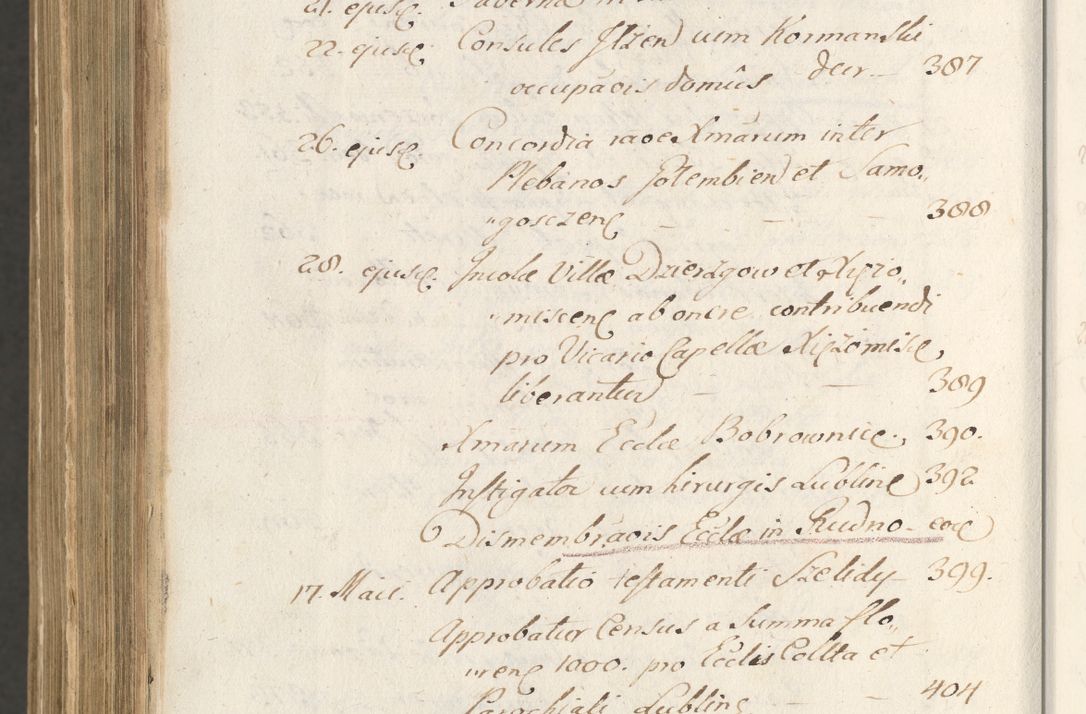 21. ejusq. Taberna in
22. ejusq. Consules Ilzen) cum Kormanski
occupaōis domûs decr. 387
26. ejusq. Concordia raōe Xmārum inter
Plebanos Gołembien) et Samo„
„gosczenq 388
28. ejusq. Incolæ Villæ Dzierzgow et Xięzo„
„miscenq ab onere contribuendi
pro Vicario Capellæ Xięzomisq,
liberantur 389
Xmārum Ecclæ Bobrownicq., 390.
Instigator cum hirurgis Lublinq) 392
Dismembrāois Ecclæ in Rudno eoq)
17. Maii. Approbatio testamenti Szelidy 399.
Approbatur Census a Summa flo„
„renq 1000. pro Ecclis Collta et
Parochiali Lublinq 404